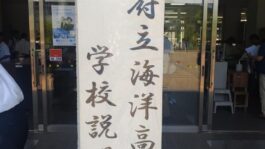 府立海洋高
学校説